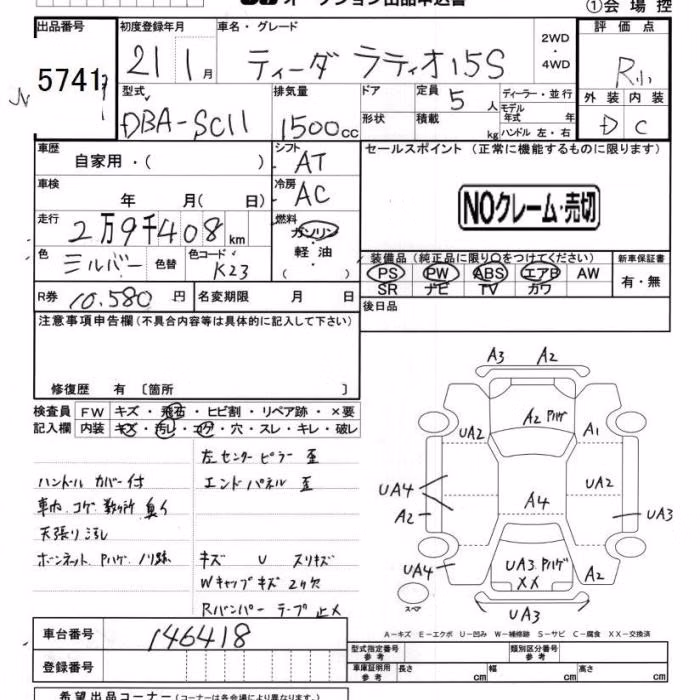 オークション出品申込書
①会場控
出品番号 初度登録年月 車名・グレード 2WD・4WD 評価点
5741 21 1月 ティーダ ラティオ 15S R
型式 排気量 ドア 定員 5人 ディーラー・並行 外装 内装
DBA-SC11 1500cc 形状 積載 kg モデル年式 年 ハンドル 左・右 D C
車歴 自家用・( ) シフト AT セールスポイント (正常に機能するものに限ります)
車検 年 月( 日) 冷房 AC
NOクレーム・売切
走行 2万9千408km 燃料 ガソリン
軽油
( )
色 シルバー 色替 色コード K23
装備品 (純正品に限り○をつけてください) 新車保証書
PS PW ABS エアB AW 有・無
SR ナビ TV カワ
R券 10,580円 名変期限 月 日 後日品
注意事項申告欄 (不具合内容等は具体的に記入して下さい)
修復歴 有 〔箇所 〕
検査員 FW キズ・飛石・ヒビ割・リペア跡・×要
記入欄 内装 キズ・汚レ・コゲ・穴・スレ・キレ・破レ
左センターピラー 歪
ハンドル カバー付 エンドパネル 歪
車内 コゲ 数ヶ所 臭イ
天張り 汚レ
ボンネット Pハゲ ノリ跡 キズ U スリキズ
Wキャップキズ 2ケ欠
Rバンパー テープ止メ
A3 A2
A2 Pハゲ
UA2 A1
UA4 UA2
A4
A2 UA3
UA4 UA3 Pハゲ A2
XX
スペア UA3
A-キズ E-エクボ U-凹み W-補修跡 S-サビ C-腐食 XX-交換済
車台番号 146418
型式指定番号 参考 類別区分番号 参考
登録番号 車庫証明用 参考 長さ cm 幅 cm 高さ cm
希望出品コーナー (コーナーは各会場により異なります。)